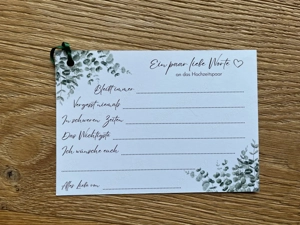 Ein paar liebe Worte
an das Hochzeitspaar
Bleibt immer
Vergesst niemals
In schweren Zeiten
Das Wichtigste
Ich wünsche euch
Alles Liebe von